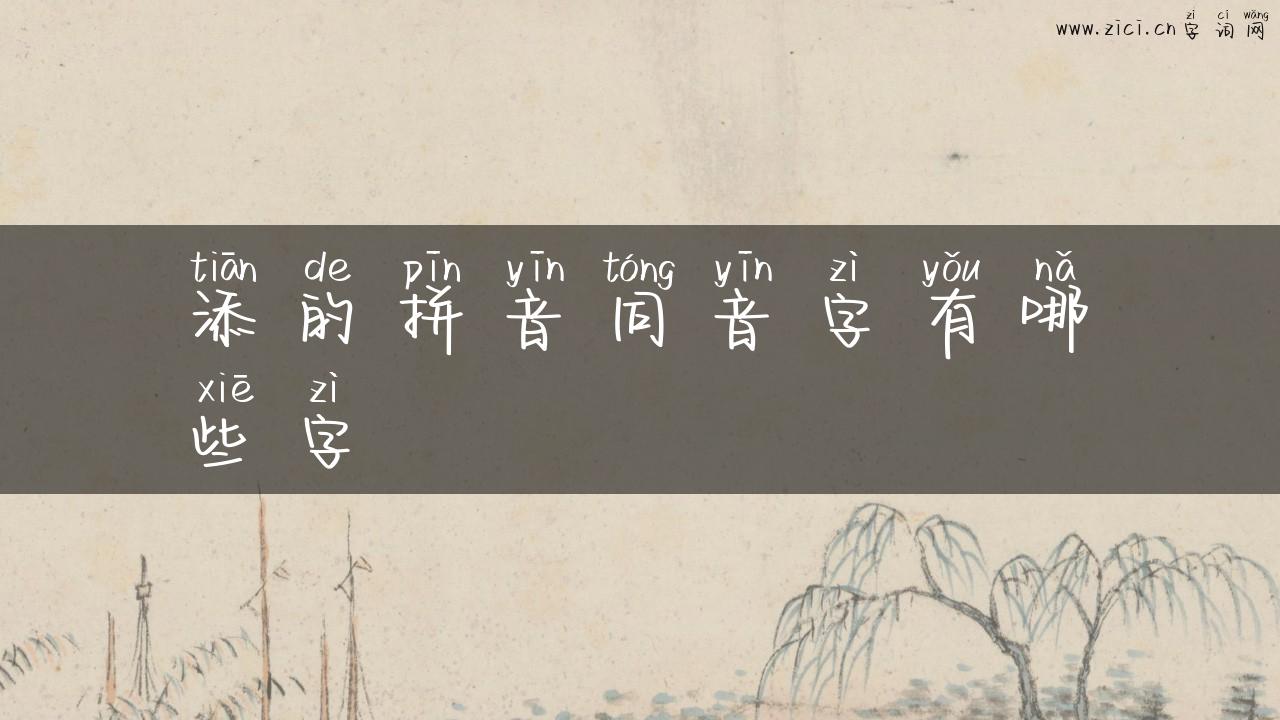 zì cí wǎng
www.zici.cn 字 词 网
tiān de pīn yīn tóng yīn zì yǒu nǎ
添 的 拼 音 同 音 字 有 哪
xiē zì
些 字